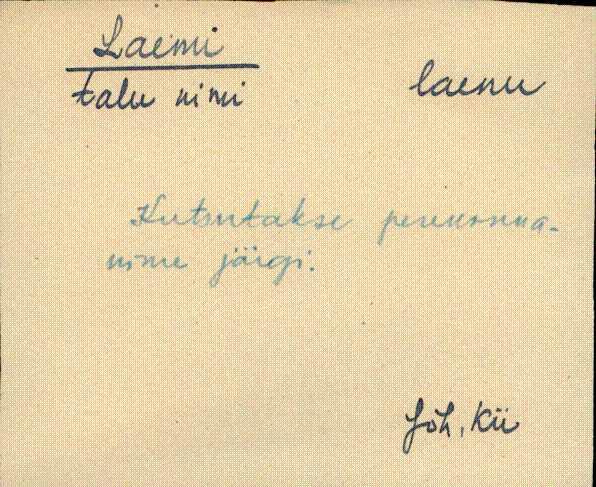 Laemi
talu nimi laenu
Kutsutakse perekonna-
nime järgi.
Jõh, Kii